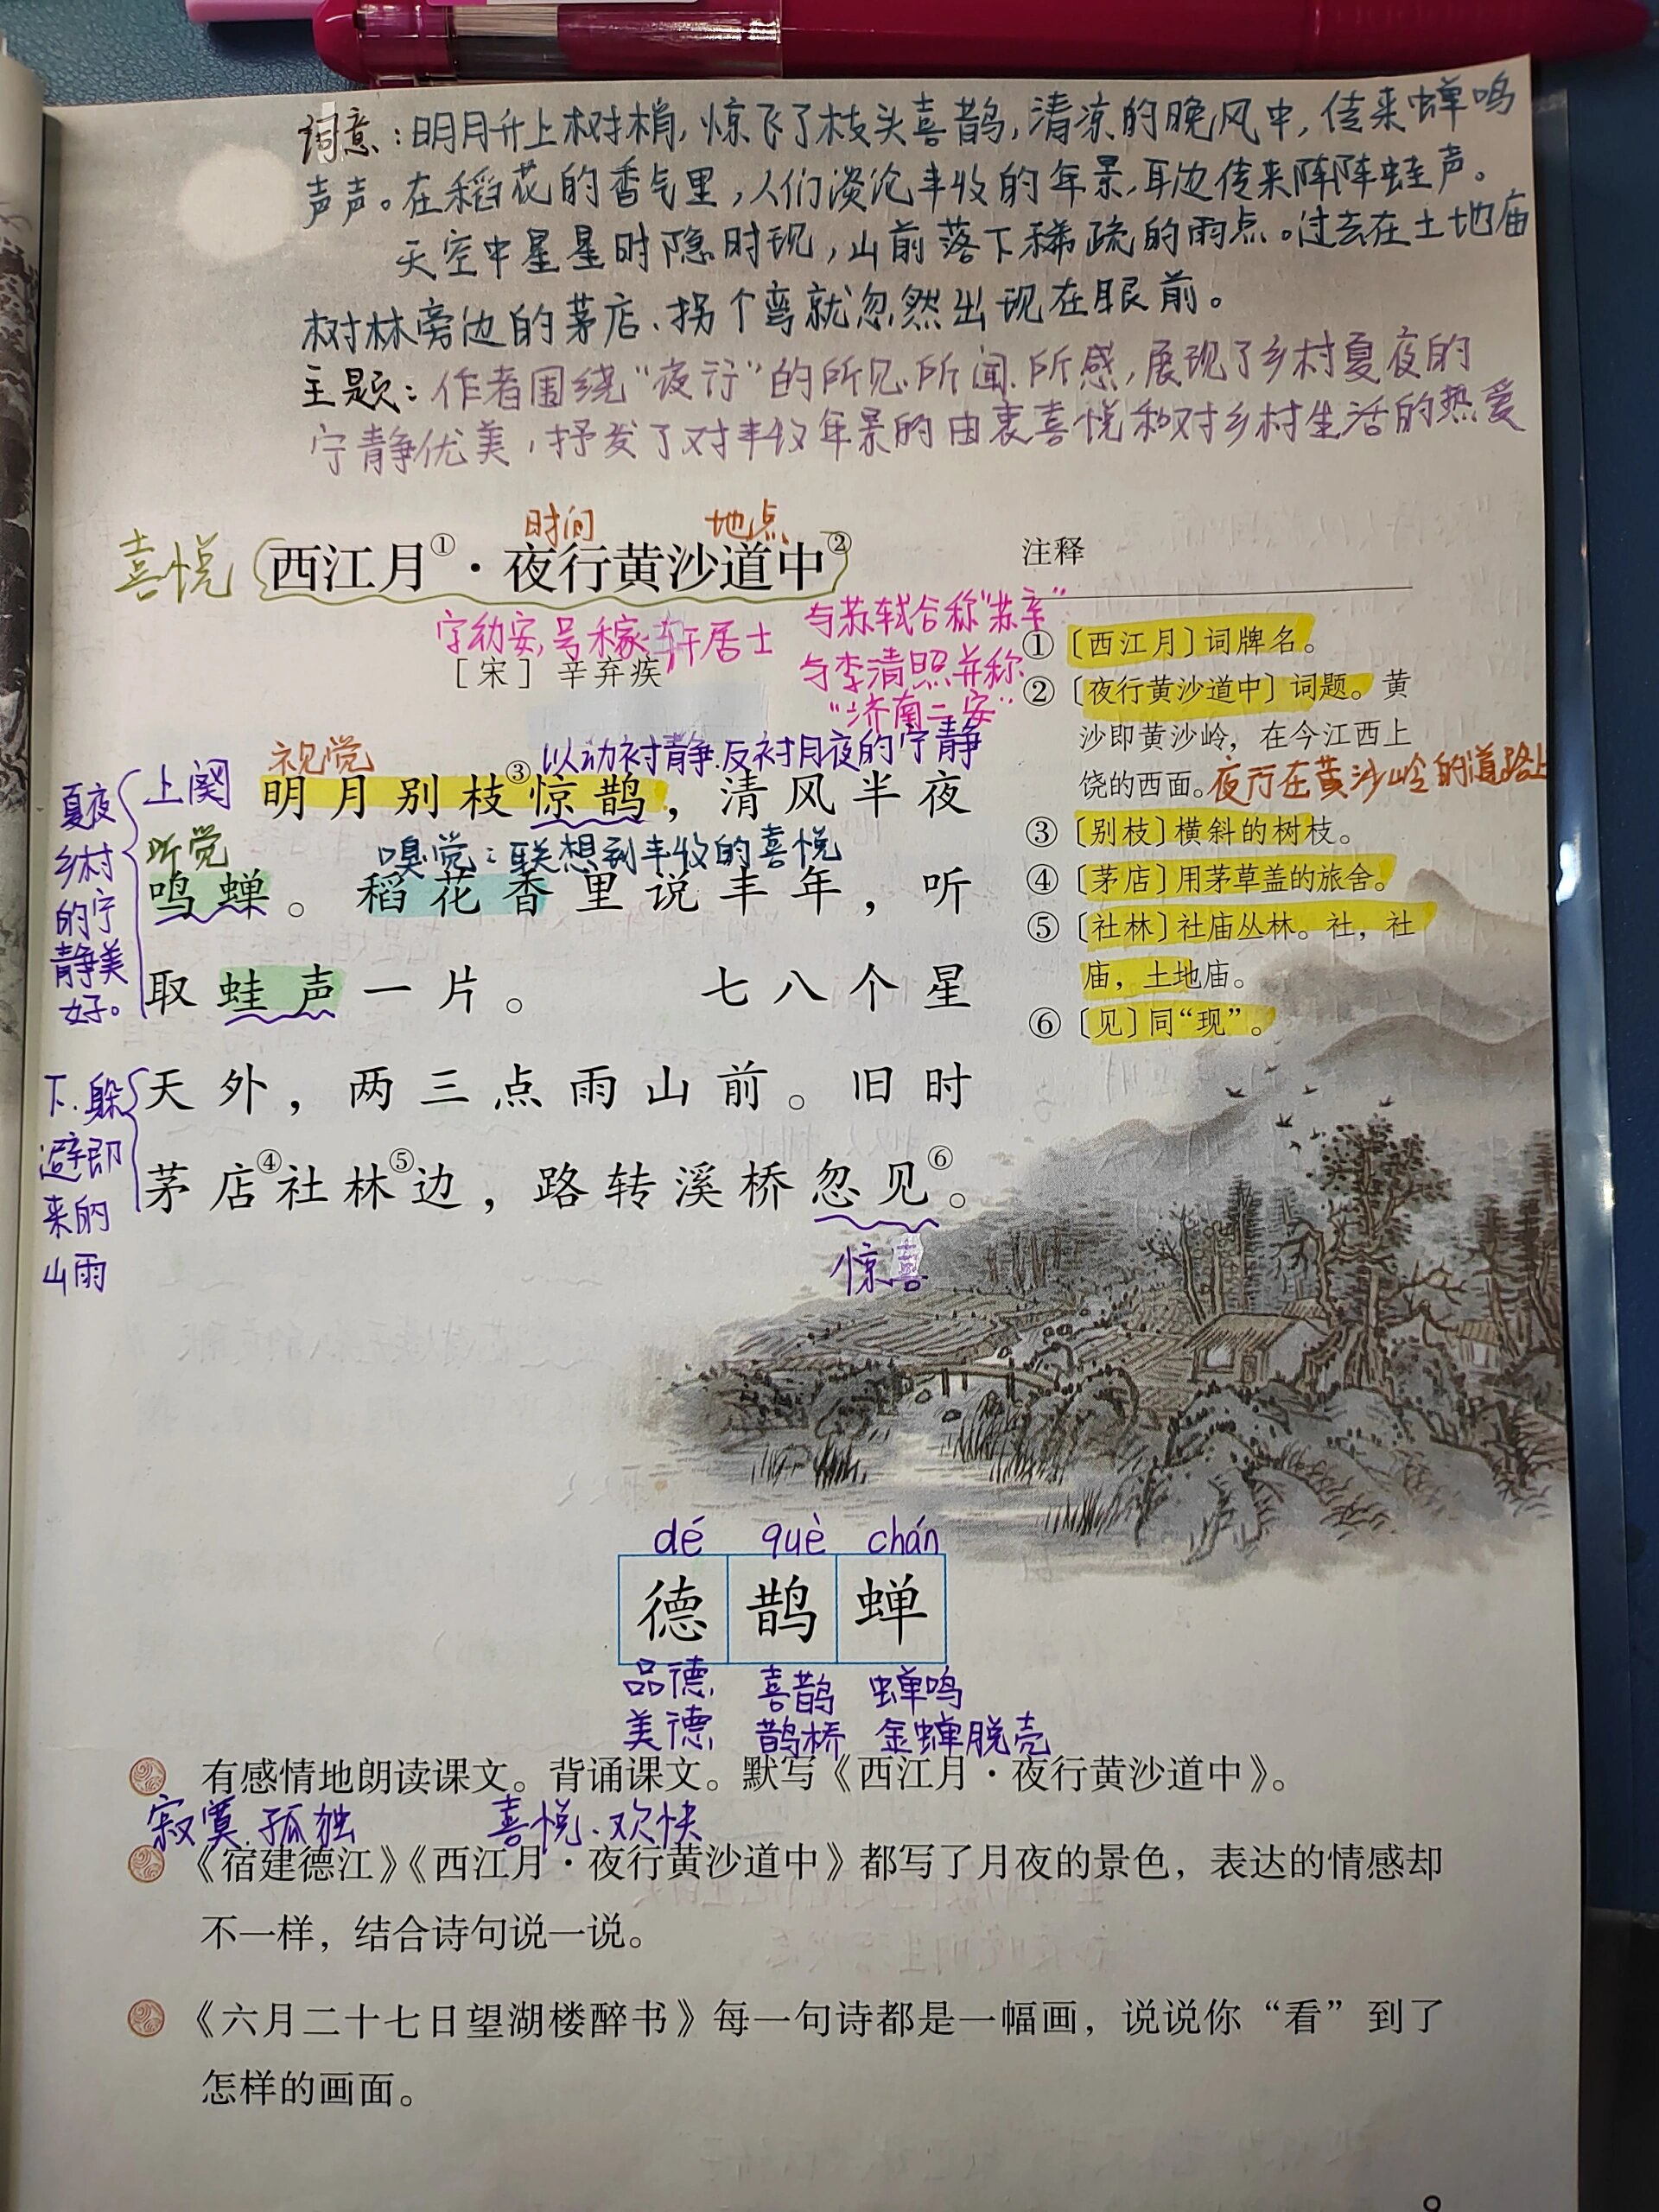 词意：明月升上树梢，惊飞了枝头喜鹊，清凉的晚风中，传来蝉鸣
声声。在稻花的香气里，人们谈论丰收的年景，耳边传来阵阵蛙声。
天空中星星时隐时现，山前落下稀疏的雨点。过去在土地庙
树林旁边的茅店、拐个弯就忽然出现在眼前。
主题：作者围绕“夜行”的所见、所闻、所感，展现了乡村夏夜的
宁静优美，抒发了对丰收年景的由衷喜悦和对乡村生活的热爱
时间 地点
喜悦 西江月①·夜行黄沙道中②
字幼安，号稼轩居士
与苏轼合称“苏辛”
[宋] 辛弃疾
与李清照并称
“济南二安”
视觉 以动衬静.反衬月夜的宁静
上阕 明月别枝③惊鹊，清风半夜
听觉 嗅觉：联想到丰收的喜悦
鸣蝉。稻花香里说丰年，听
取蛙声一片。 七八个星
天外，两三点雨山前。旧时
茅店④社林⑤边，路转溪桥忽见⑥。
惊喜
夏夜
乡村
的宁
静美
好。
下.躲
避即
来的
山雨
注释
①〔西江月〕词牌名。
②〔夜行黄沙道中〕词题。黄
沙即黄沙岭，在今江西上
饶的西面。夜行在黄沙岭的道路上
③〔别枝〕横斜的树枝。
④〔茅店〕用茅草盖的旅舍。
⑤〔社林〕社庙丛林。社，社
庙，土地庙。
⑥〔见〕同“现”。
dé què chán
德 鹊 蝉
品德 喜鹊 蝉鸣
美德 鹊桥 金蝉脱壳
有感情地朗读课文。背诵课文。默写《西江月·夜行黄沙道中》。
寂寞.孤独 喜悦、欢快
《宿建德江》《西江月·夜行黄沙道中》都写了月夜的景色，表达的情感却
不一样，结合诗句说一说。
《六月二十七日望湖楼醉书》每一句诗都是一幅画，说说你“看”到了
怎样的画面。
9